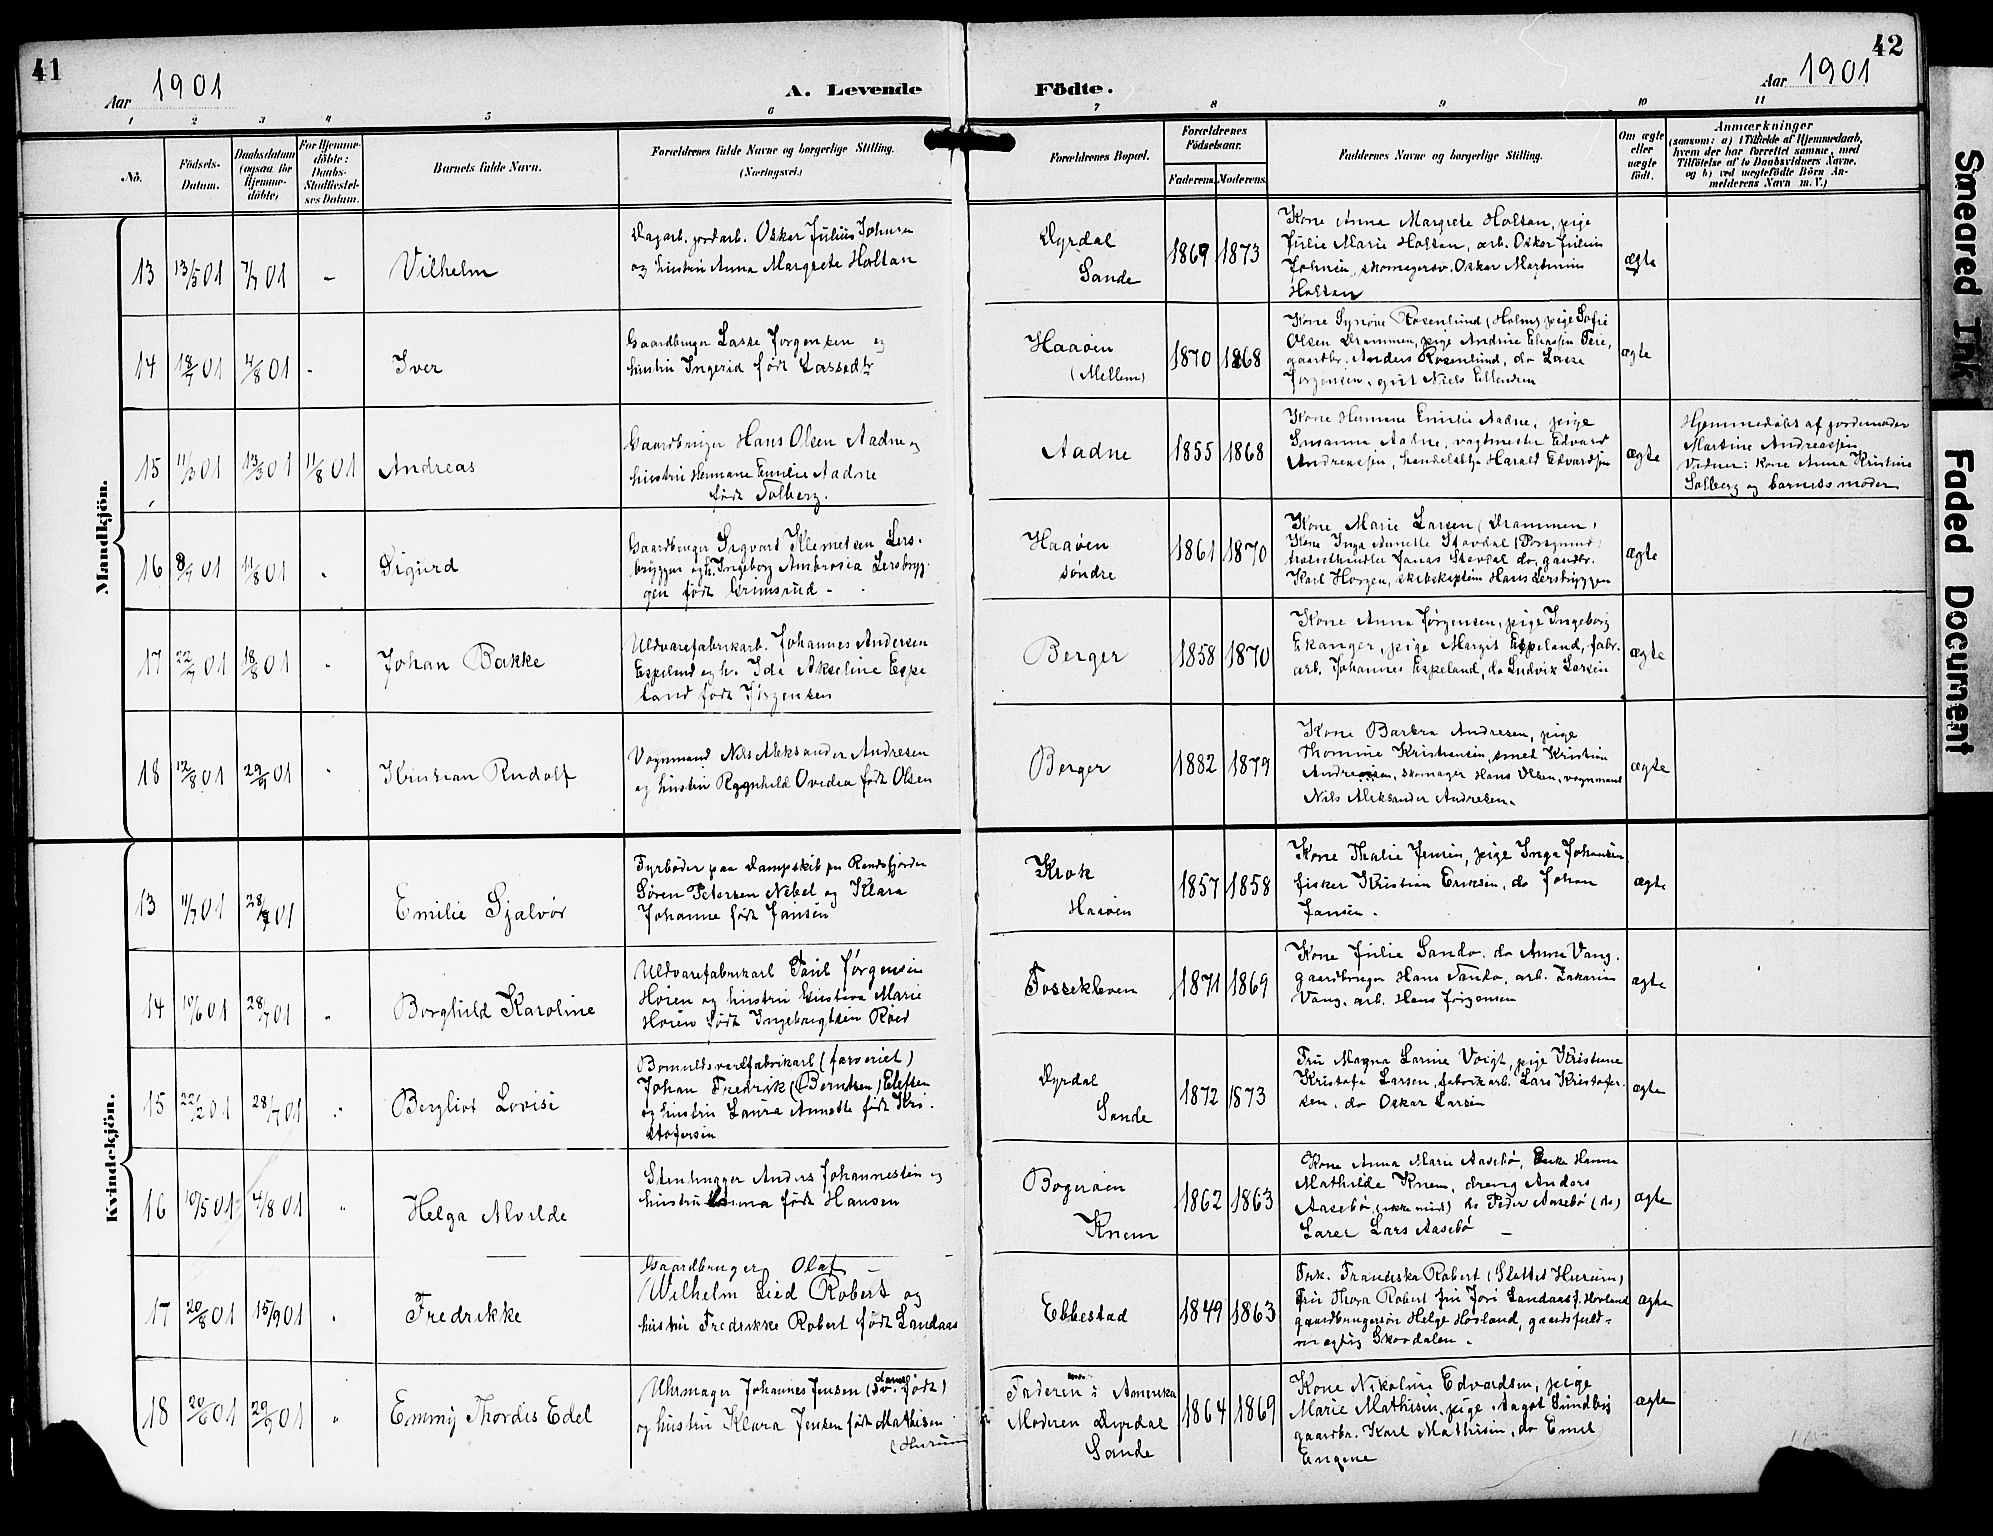 41
Aar 1901
A. Levende
Födte.
Aar 1901
42
1 2 3 4 5 6 7 8 9 10 11
Nö.
Födsels-Datum.
Daabsdatum (ogsaa for Hjemme-döbte)
For Hjemme-döbte: Daabs-Stadfæstel-ses Datum.
Barnets fulde Navn.
Forældrenes fulde Navne og borgerlige Stilling.
(Næringsvei.)
Forældrenes Bopæl.
Forældrenes Födselsaar.
Faderens. Moderens.
Faddernes Navne og borgerlige Stilling.
Om ægte eller uægte født.
Anmærkninger
(saasom: a) i Tilfælde af Hjemmedaab,
hvem der har forrettet samme, med
Tilföielse af to Daabsvidners Navne.
og b) ved uægtefödte Börn An-
melderens Navn m. V.)
Mandkjön.
13 13/5 01 7/7 01 - Vilhelm
Dagarb. jordarb. Oskar Julius Johnsen
og hustru Anna Margrete Holtan
Dyrdal
Sande
1869 1873
Kone Anna Margrete Holtan, pige
Julie Marie Holtan, arb. Oskar Julius
Johnsen, skomagersv. Oskar Martinius
Holtan
ægte
14 18/7 01 4/8 01 - Iver
Gaardbruger Lasse Jorgensen og
hustru Ingerid født Lassedtr
Haaøen
(Mellem)
1870 1868
Kone Synøve Rosenlund (Holm) pige Sofie
Olsen Drammen, pige Andrine Eliassen Teie,
gaardbr. Anders Rosenlund, do Lasse
Jorgensen, gut Niels Ellendsen
ægte
15 11/3 01 13/3 01 11/8 01 Andreas
Gaardbruger Hans Olsen Aadne og
hustru Hermane Emilie Aadne
født Solberg.
Aadne
1855 1868
Kone Hermane Emilie Aadne, pige
Susanna Aadne, vagtmester Edvard
Andreassen, handelsbtj. Harald Edvardsen
ægte
Hjemmedøbt af jordemoder
Martine Andreassen
Vidner: kone Anna Kristine
Solberg og barnets moder
16 8/7 01 11/8 01 Sigurd
Gaardbruger Sigvart Klemetsen Lers-
bryggen og h. Ingeborg Ambrosia Lersbryg-
gen født Grimsrud -
Haaøen
søndre
1861 1870
Kone Marie Larsen (Drammen)
Kone Inga Annette Stavdal
Jonas Stavdal do, gaardbr.
Karl Horgen, skibskaptein Hans Lersbryggen
ægte
17 22/7 01 18/8 01 Johan Bakke
Uldvarefabrikarb. Johannes Andersen
Espelund og h. Ida Akseline Espe
land født Jørgensen
Berger
1858 1870
Kone Anna Jørgensen, pige Ingeborg
Ekanger, pige Margit Espeland, fabr.
arb. Johannes Espeland, do Ludvik Larsen
ægte
18 12/8 01 29/9 01 Kristian Rudolf
Vognmand Nils Aleksander Andresen
og hustru Ragnhild Ovedia født Olsen
Berger
1882 1879
Kone Barbra Andresen, pige
Thomine Kristiansen, smed Kristian
Andreassen, skomager Hans Olsen, vognmand
Nils Aleksander Andresen.
ægte
Kvindekjön.
13 11/7 01 28/7 01 Emilie Sjalvør
Fyrbøder paa Dampskib paa Randsfjorden
Søren Petersen Nebel og Klara
Johanne født Jansen
Krok
Haaøen
1857 1858
Kone Thalie Jensen, pige Inga Johansen
fisker Kristian Eriksen, do Johan
Jansen.
ægte
14 10/6 01 28/7 01 Borghild Karoline
Uldvarefabrikarb Paul Jørgensen
Høien og hustru Gustava Marie
Høien født Ingebregtsen Røed
Fossekleven
1871 1869
Kone Julie Sando. do Anne Vang.
gaardbruger Hans Sando, arb. Zakarias
Vang. arb. Hans Jørgensen
ægte
15 22/2 01 28/7 01 Bergliot Lovise
Bomuldsvarefabrikarb (farveriet)
Johan Fredrik (Berntsen) Elefsen
og hustru Laura Annette født Kri-
stofersen
Dyrdal
Sande
1872 1873
Fru Magna Larine Voigt, pige Kristiane
Kristofa Larsen, fabrikarb. Lars Kristofer-
sen, do Oskar Larsen
ægte
16 10/5 01 4/8 01 Helga Alvilde
Stenhugger Anders Johannessen og
hustru Emma født Hansen
Bogerøen
Knem
1862 1863
Kone Anna Marie Aasebø, Enke Hanna
Mathilde Knem, dreng Anders
Aasebø, (ikke med) do Peder Aasebø (do)
Larer Lars Aasebø -
ægte
17 20/8 01 15/9 01 Fredrikke
Gaardbruger Olaf
Wilhelm Lied Robert og
hustru Fredrikke Robert født Landaas
Ebbestad
1849 1863
Frk. Franciska Robert (Slottet Hurum)
Fru Thora Robert fru Jori Landaas f. Hovland
gaardbrugersøn Helge Hovland, gaardsfuld-
mægtig Skovdalen.
ægte
18 20/6 01 29/9 01 Emmy Thordis Edel
Uhrmager Johannes Jensen (født)
og hustru Klara Jensen født Mathisen
(Hurum
Faderen i Amerika
Moderen Dyrdal
Sande
1864 1869
Kone Nikoline Edvardsen, pige
Marie Mathisen, pige Dagot Sundby
gaardbr. Karl Mathisen, do Emil
Engene
ægte
Smeared Ink
Faded Document